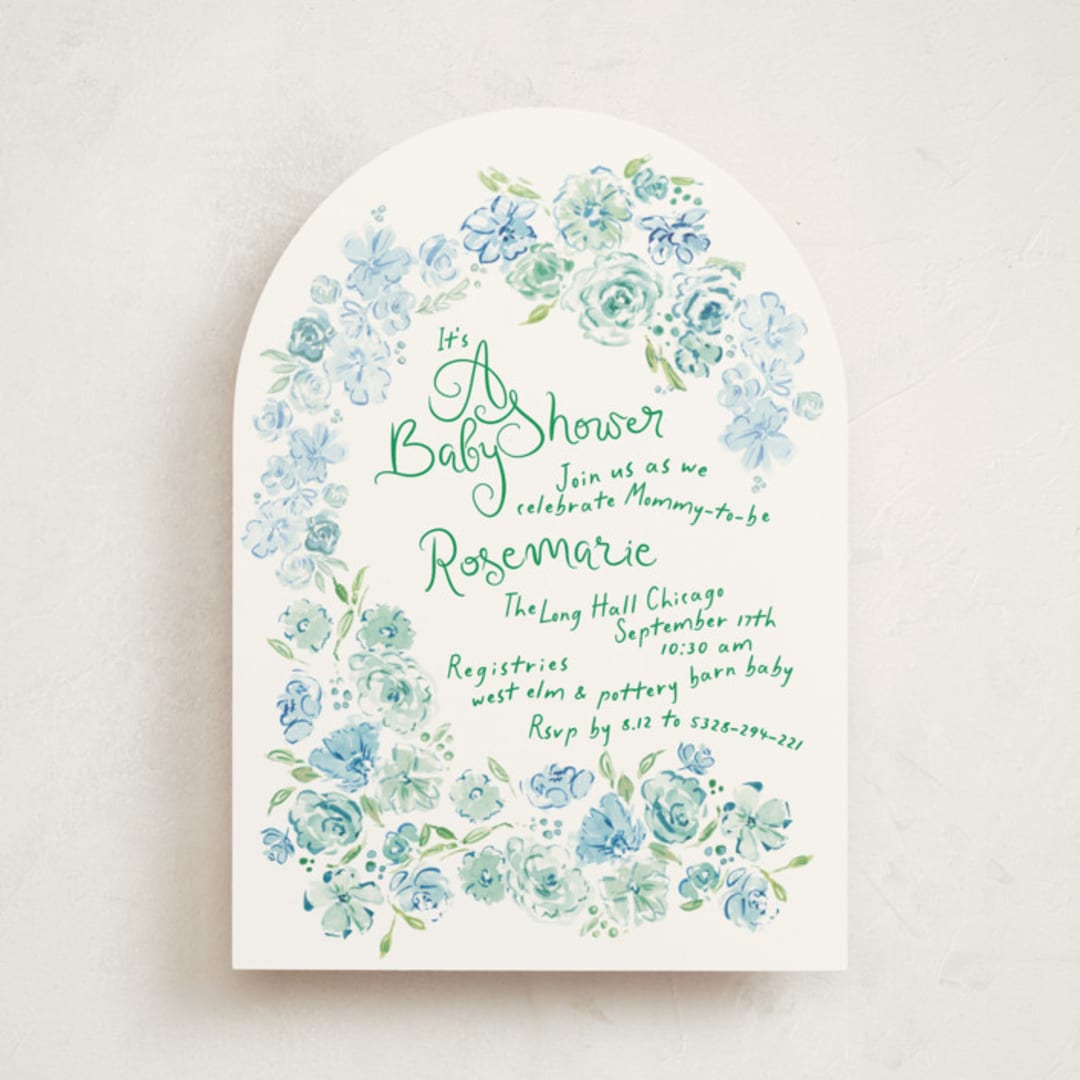 It's
A
Baby Shower
Join us as we
celebrate Mommy-to-be
Rosemarie
The Long Hall Chicago
September 17th
10:30 am
Registries
west elm & pottery barn baby
Rsvp by 8.12 to 5328-294-221